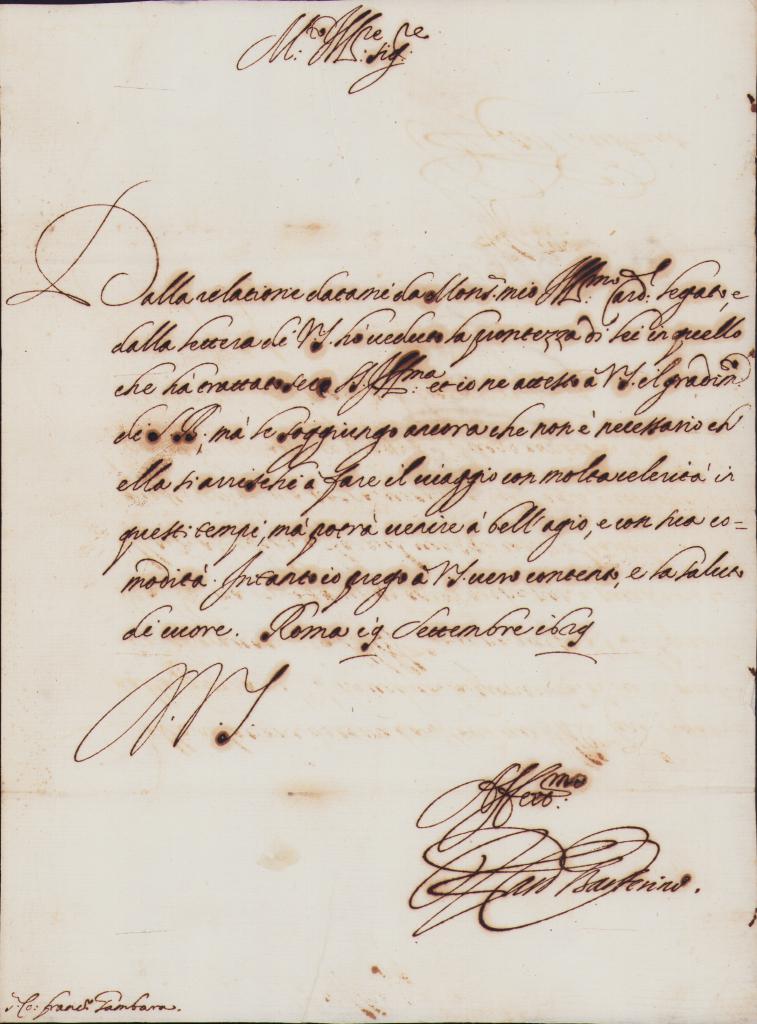 M.to Ill.re Sig.re
Dalla relatione datami da Mons.r mio Ill.mo Card.l Legato, e
dalla lettera di V.S. hò veduto la prontezza di lei in quello
che hà trattato seco S. S. Ill.ma et io ne attesto à V.S. il gradim.to
di S. B., mà le soggiungo ancora che non è necessario ch'
ella si arrischi à fare il viaggio con molta celerità in
questi tempi, mà potrà venire à bell'agio, e con sua co=
modità. Intanto io prego à V.S. vero contento, e la saluto
di cuore. Roma 19 Settembre 1629
D. V. S.
Aff.mo
Il Card Barberino.
Franc.o Gambara.